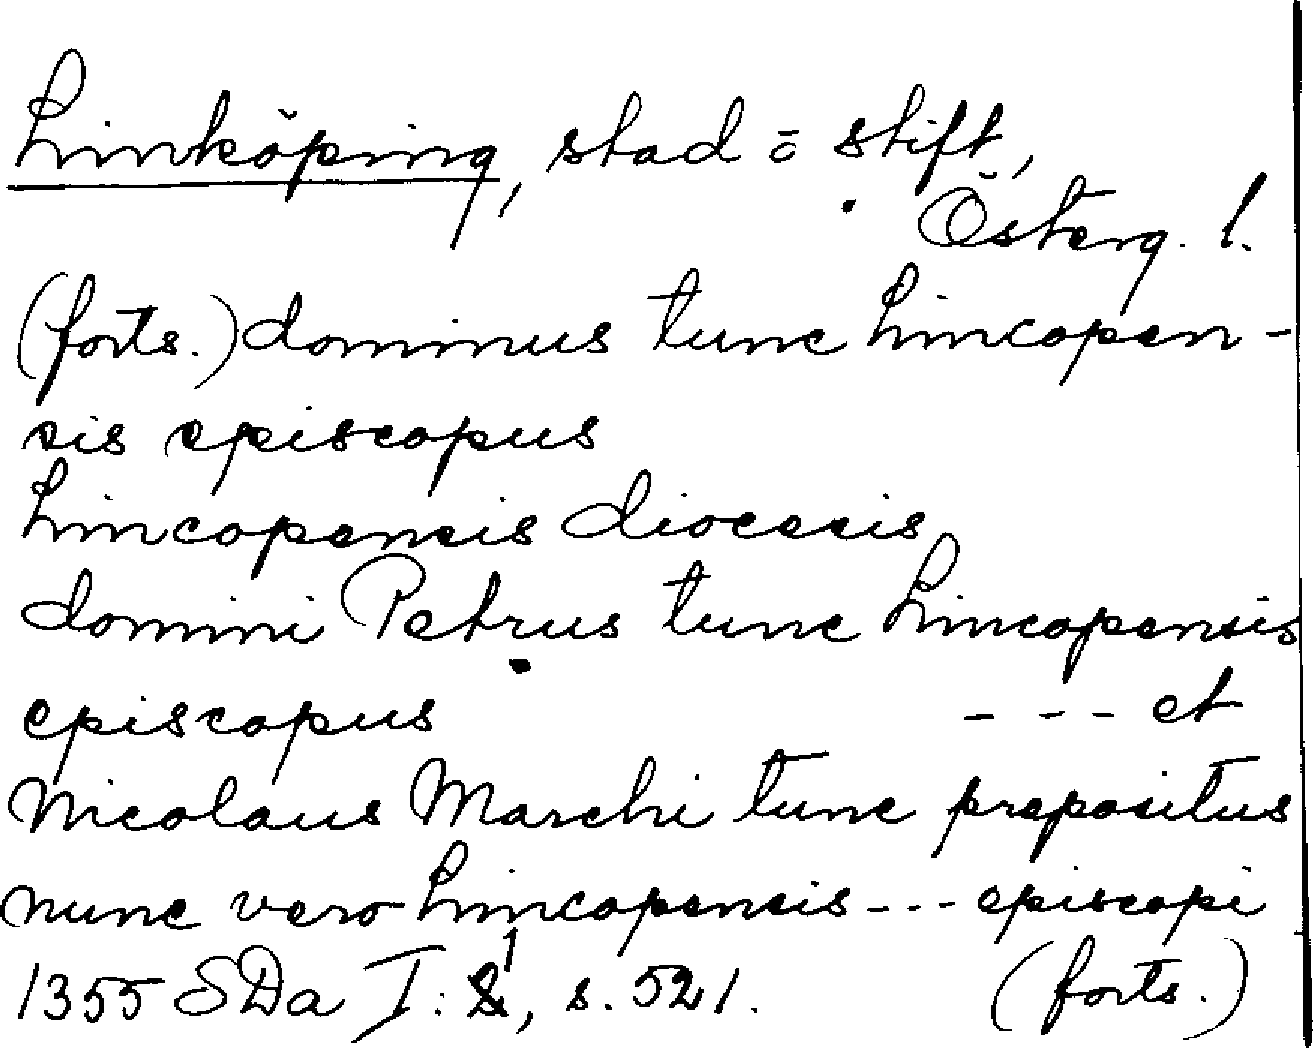 Linköping, stad o stift,
Österg. l.
(forts.) dominus tunc Lincopen-
sis episcopus
Lincopensis diocesis
domini Petrus tunc Lincopensis
episcopus --- et
Nicolaus Marchi tunc prepositus
nunc vero Lincopensis --- episcopi
1355 SDa I: 1, s. 521. (forts.)